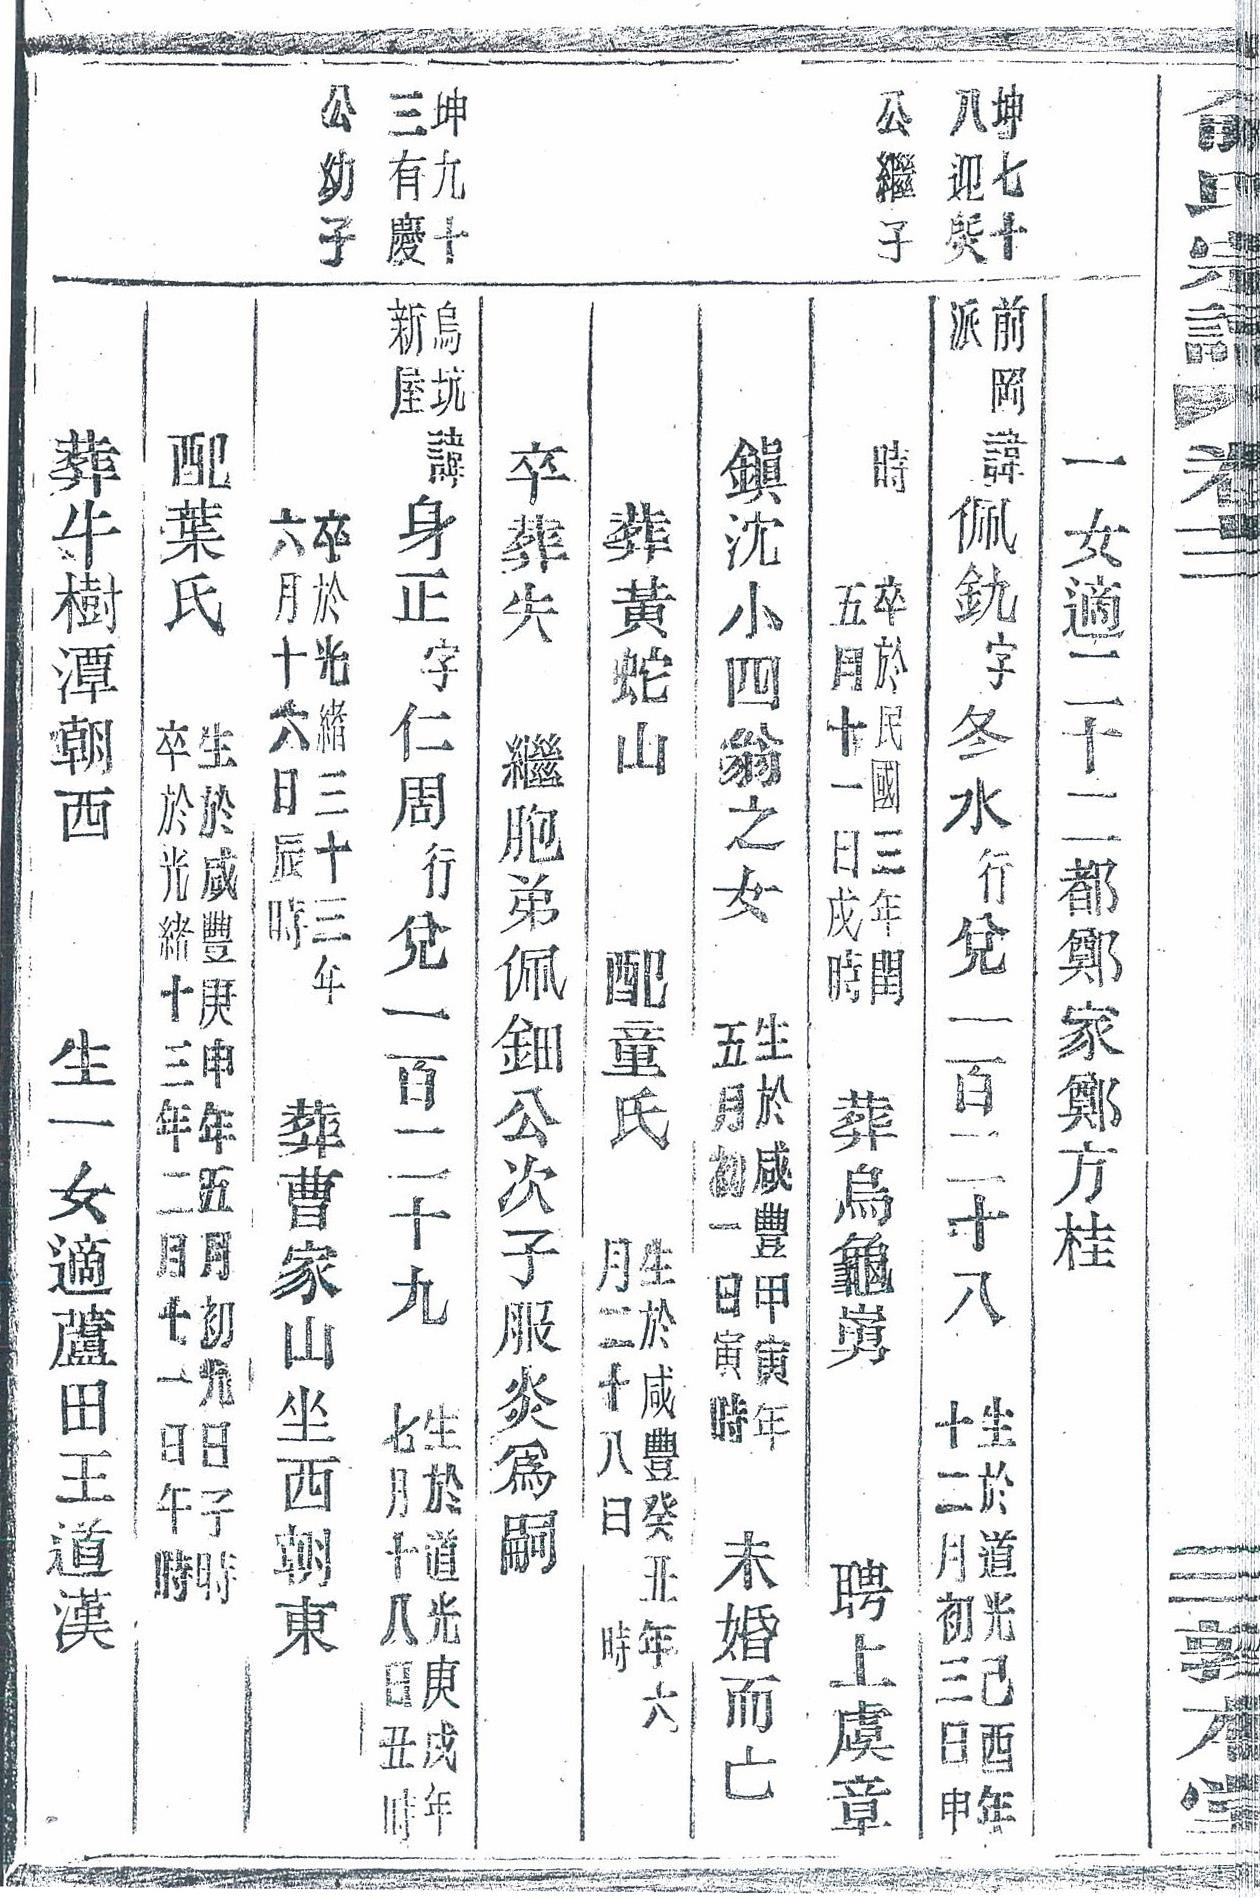 俞氏宗譜 卷三 敦本堂
一女適二十二都鄭家鄭方桂
坤七十
八迎熒
公繼子
前岡
派
諱佩鈂字冬水行兌一百二十八
生於道光己酉年
十二月初三日申
時
卒於民國三年閏
五月十一日戌時
葬烏龜嵏
聘上虞章
鎮沈小四翁之女
生於咸豐甲寅年
五月初一日寅時
未婚而亡
葬黃蛇山
配童氏
生於咸豐癸丑年六
月二十八日 時
卒葬失 繼胞弟佩鈿公次子服炎爲嗣
坤九十
三有慶
公幼子
烏坑
新屋
諱身正字仁周行兌一百二十九
生於道光庚戌年
七月十八日丑時
卒於光緒三十三年
六月十六日辰時
葬曹家山坐西朝東
配葉氏
生於咸豐庚申年五月初九日子時
卒於光緒十三年二月七一日午時
葬牛樹潭朝西
生一女適蘆田王道漢